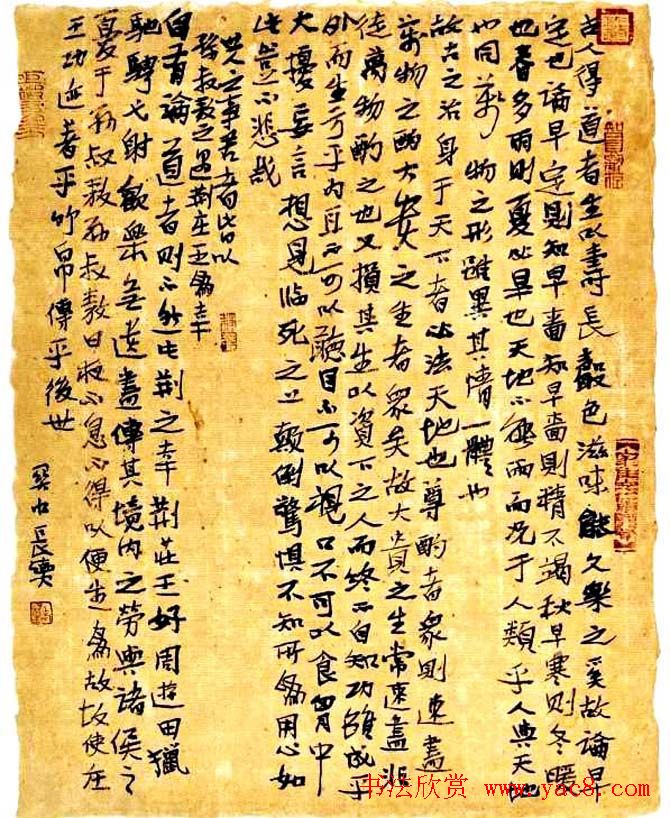 古人得道者生以壽長聲色滋味能久樂之奚故論早
定也論早定則知早嗇知早嗇則精不竭秋早寒則冬暖
也春多雨則夏必旱也天地不能兩而況于人類乎人與天地
也同萬物之形雖異其情一體也
故古之治身于天下者必法天地也尊酌者衆則速盡
萬物之酌大貴之生者衆矣故大貴之生常速盡非
徒萬物酌之也又損其生以資天下之人而終不自知功雖成乎
外而生亏乎内耳不可以聽目不可以視口不可以食胸中
大擾妄言想見臨死之上顛倒驚懼不知所為用心如
此豈不悲哉
世之事君者皆以
孫叔敖之遇荆庄王為幸
自有論道者則不然此荆之幸荆莊王好周遊田獵
馳騁弋射歡樂無遺盡傅其境内之勞與諸侯之
憂于孫叔敖孫叔敖日夜不息不得以便生為故故使庄
王功迹著乎竹帛傳乎後世
书法欣赏 www.yac8.com